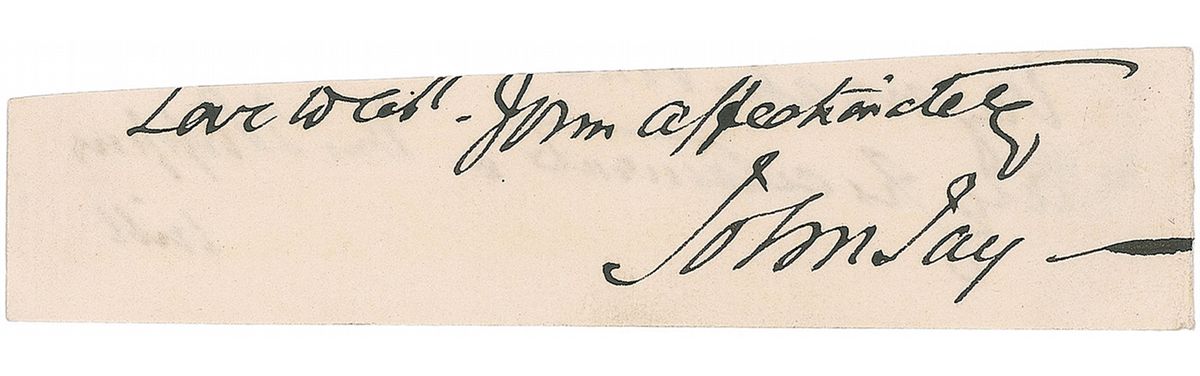 Love to all - Yours affectionately
John Jay